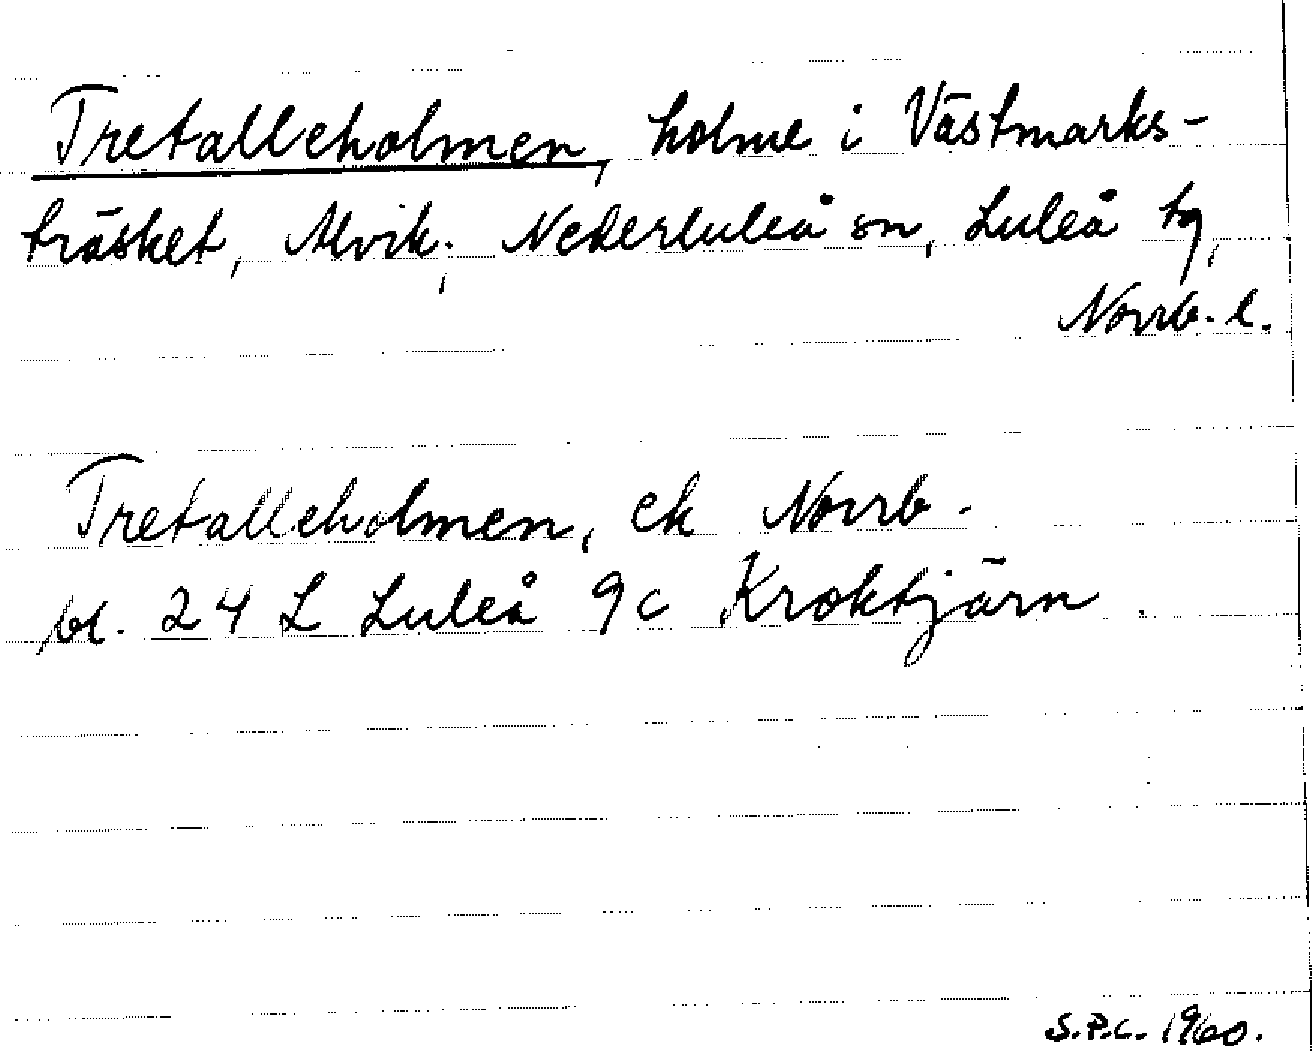 Tretalleholmen, holme i Västmarks-
träsket, Alvik, Nederluleå sn, Luleå tg,
Norrb. l.
Tretalleholmen, ek Norrb.
bl. 24 L Luleå 9c Kroktjärn.
S.P.C. 1960.